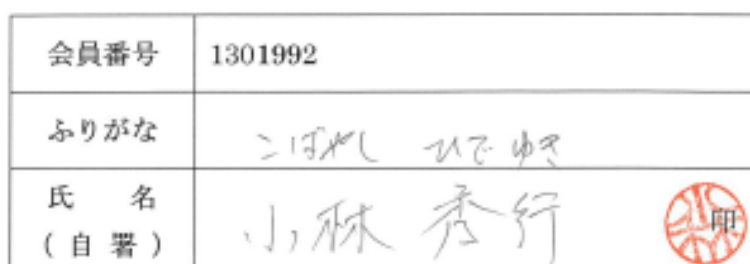 会員番号 1301992
ふりがな こばやし ひでゆき
氏 名 小林 秀行 印
(自署)